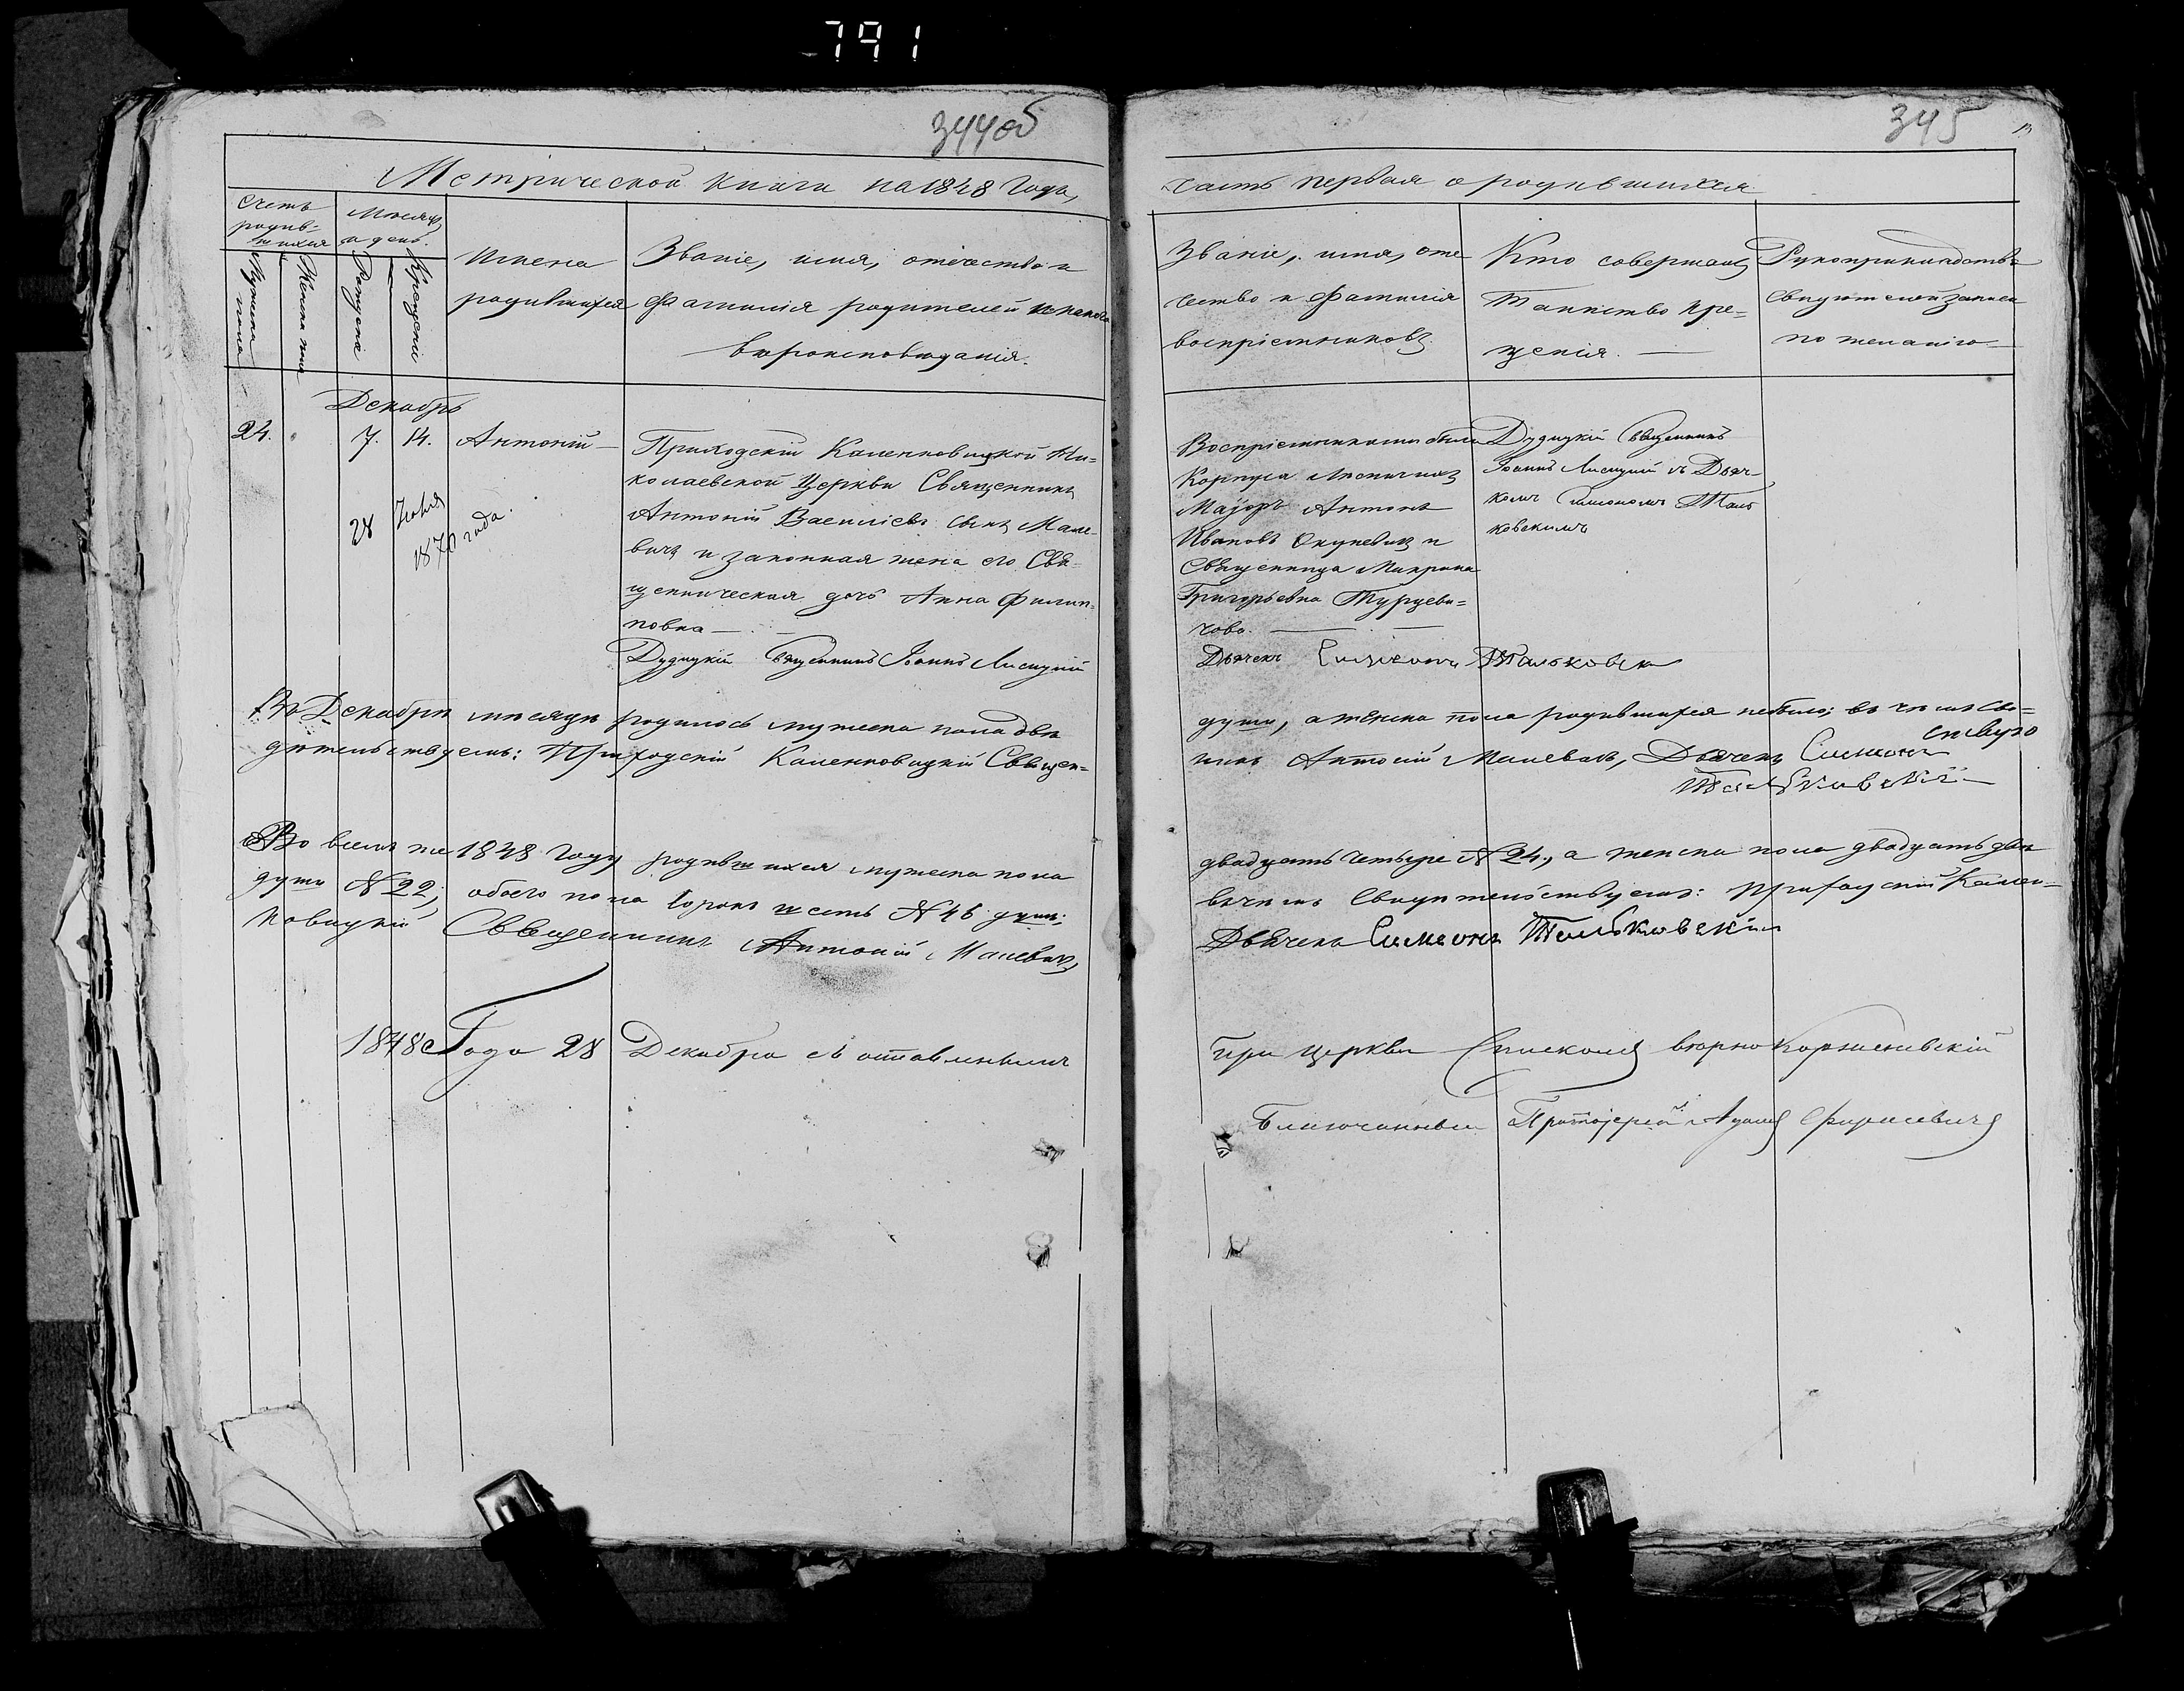 791
344об
Метрической книги на 1848 Годъ,
Счетъ родив-шихся
Мѣсяцъ и день.
Мужеска пола
Женска пола
Рожденія
Крещенія
Имена родившихся
Званіе, имя, отечество и
фамилія родителей и какого
вѣроисповѣданія.
Декабрь
24.
7. 14. Антоній —
28 Іюня
1870 года.
Приходскій Каменковицкой Ни-
колаевской Церкви Священникъ
Антоній Василіевъ сынъ Мале-
вичъ и законная жена его Свя-
щенническая дочь Анна Филип-
повна —
Дудицкій Священникъ Іоаннъ Лисицкій
Въ Декабрѣ мѣсяцѣ родилось мужеска пола двѣ
дѣтельствуемъ: Приходскій Каменковицкій Священ-
А во всемъ же 1848 году родившихся мужеска пола
души N 22, обоего пола сорокъ шесть N 46 душъ:
ковицкій Священникъ Антоній Малевичъ,
1848 Года 28 Декабря съ оставленнымъ
345
часть первая о родившихся
Званіе, имя, оте
чество и фамилія
воспріемниковъ.
Кто совершалъ
Таинство кре-
щенія. —
Рукоприкладство
свидѣтелей записи
по желанію —
Воспріемниками были
Корпуса Лѣсничихъ
Маіоръ Антонъ
Ивановъ Окуневичъ и
Священница Макрина
Григорьевна Турцеви-
чова. —
Дудицкій Священникъ
Іоаннъ Лисицкій съ Дьяч-
комъ Симеономъ Таль
ковскимъ
Дьячекъ Симеонъ Тальковскі
души, а женска пола родившихся небыло; въ чемъ сви-
никъ Антоній Малевичъ, Дьячекъ Симеонъ
Тальковскій
двадцать четыре N 24, а женска пола двадцать двѣ
въ чемъ свидѣтельствуемъ: Приходскій Камен-
Дьячекъ Симеонъ Тальковскій
при церкви Спискомъ вѣрно Корженевскій
Благочинный Протоіерей Адамъ Фирисевичъ